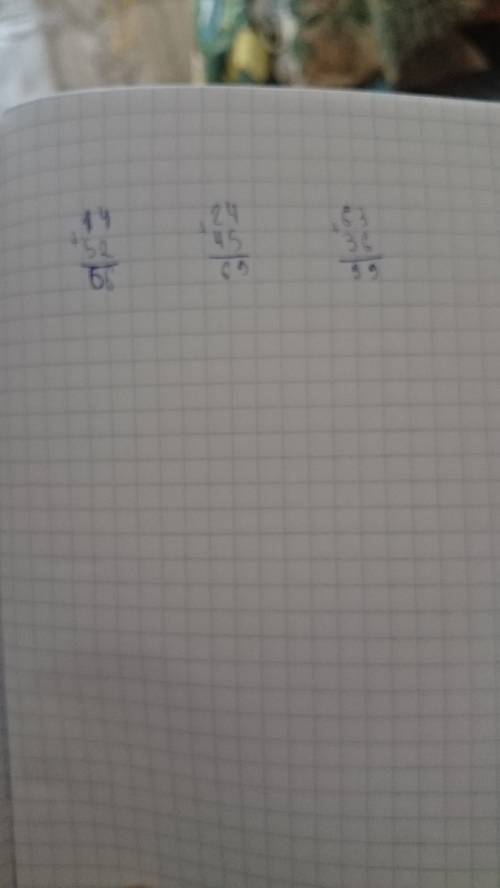 14 24 63
+ 52 + 45 + 36
66 69 99